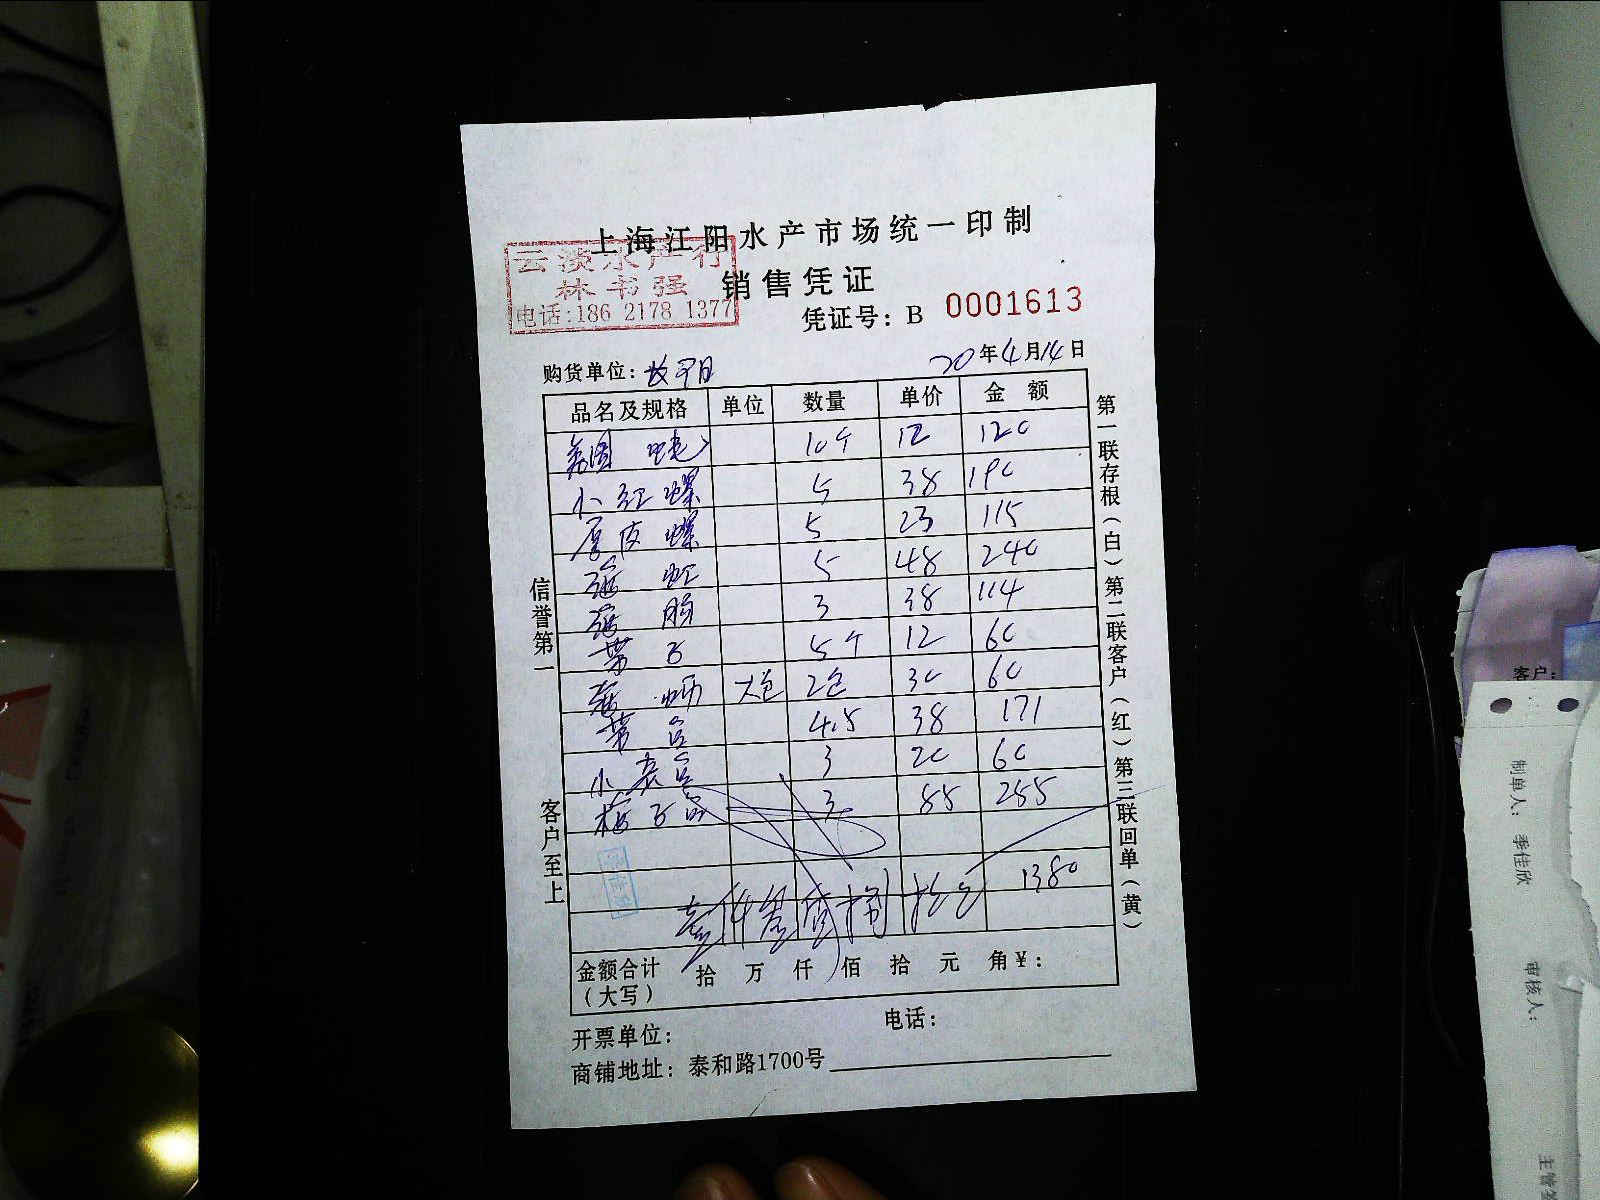 上海江阳水产市场统一印制
云淡水产行
林书强
电话:186 2178 1377
销售凭证
凭证号: B 0001613
购货单位:
20年4月14日
品名及规格 单位 数量 单价 金额
美国 10个 12 120
小红螺 5 38 190
厚皮螺 5 23 115
5 48 240
3 38 114
带子 5个 12 60
大包 2包 30 60
4.5 38 171
小 3 20 60
3 85 255
1380
壹仟叁佰捌拾元
金额合计(大写) 拾 万 仟 佰 拾 元 角¥:
开票单位: 电话:
商铺地址: 泰和路1700号
信誉第一
客户至上
第一联存根(白)第二联客户(红)第三联回单(黄)
客户:
制单人: 季佳欣
审核人:
主管